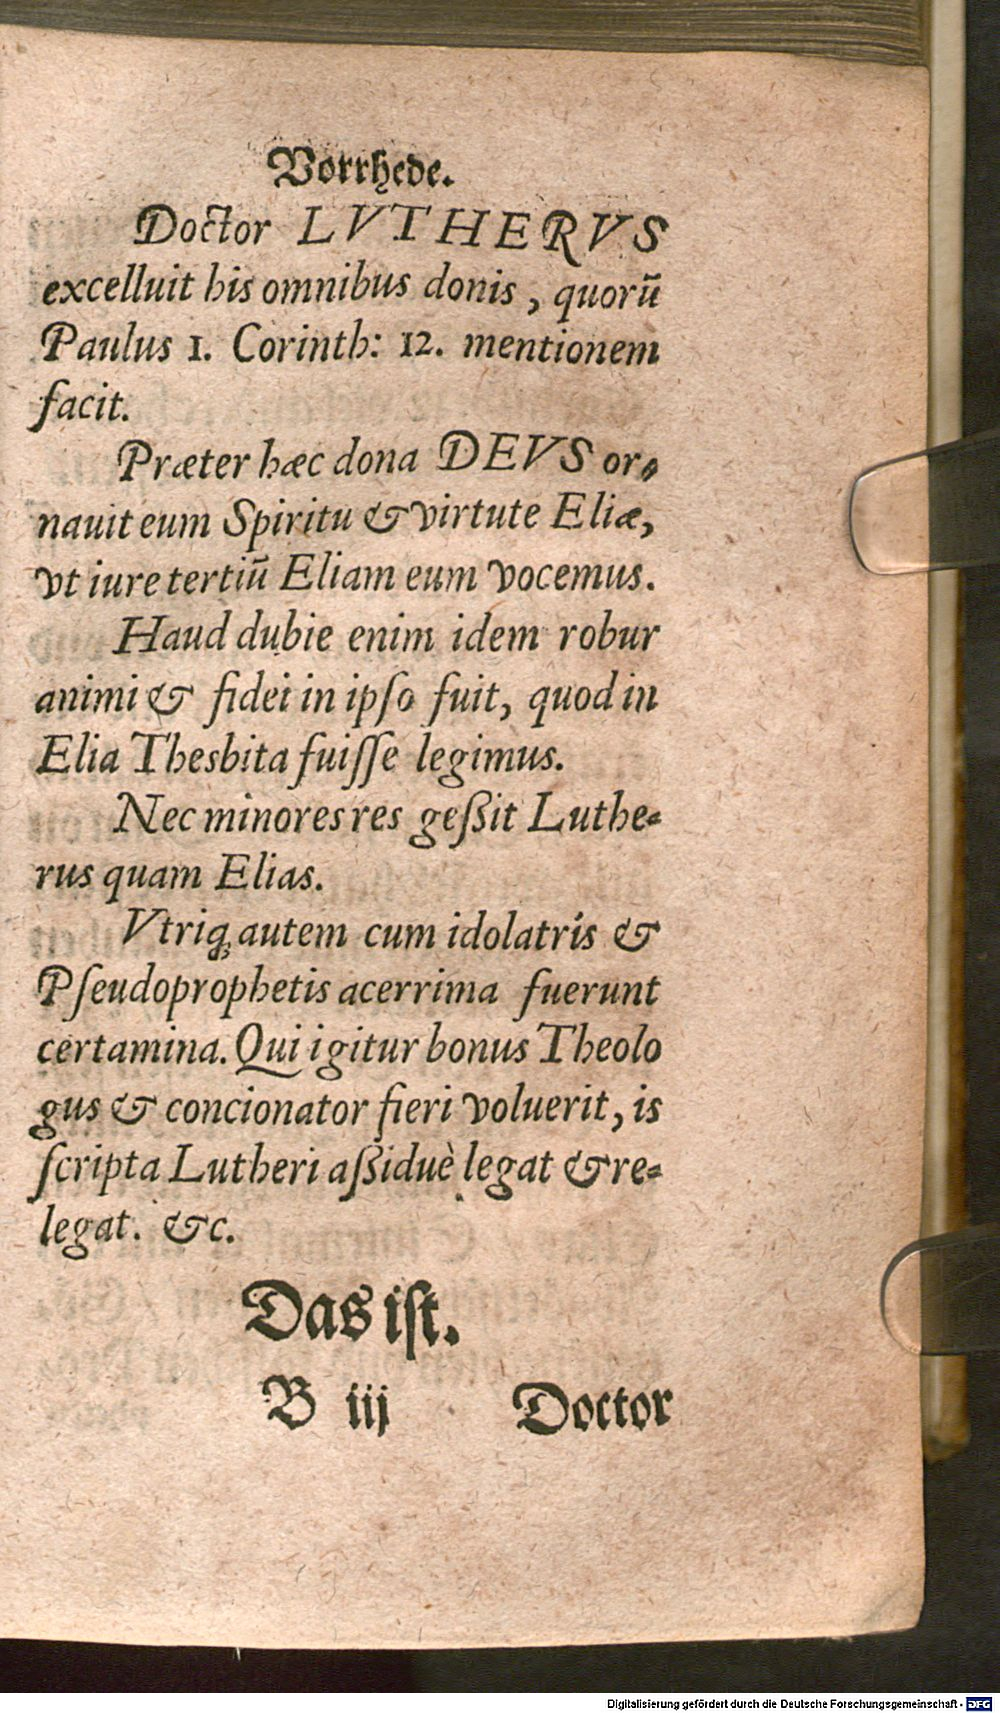 Vorrhede.
Doctor LVTHERVS
excelluit his omnibus donis, quorũ
Paulus 1. Corinth: 12. mentionem
facit.
Præter hæc dona DEVS or-
nauit eum Spiritu & virtute Eliæ,
vt iure tertiũ Eliam eum vocemus.
Haud dubie enim idem robur
animi & fidei in ipſo fuit, quod in
Elia Thesbita fuiſſe legimus.
Nec minores res geßit Luthe-
rus quam Elias.
Vtriq; autem cum idolatrís &
Pſeudoprophetis acerrima fuerunt
certamina. Qui igitur bonus Theolo
gus & concionator fieri voluerit, is
ſcripta Lutheri aßiduè legat & re-
legat. &c.
Das iſt.
B iij Doctor
Digitalisierung gefördert durch die Deutsche Forschungsgemeinschaft - DFG